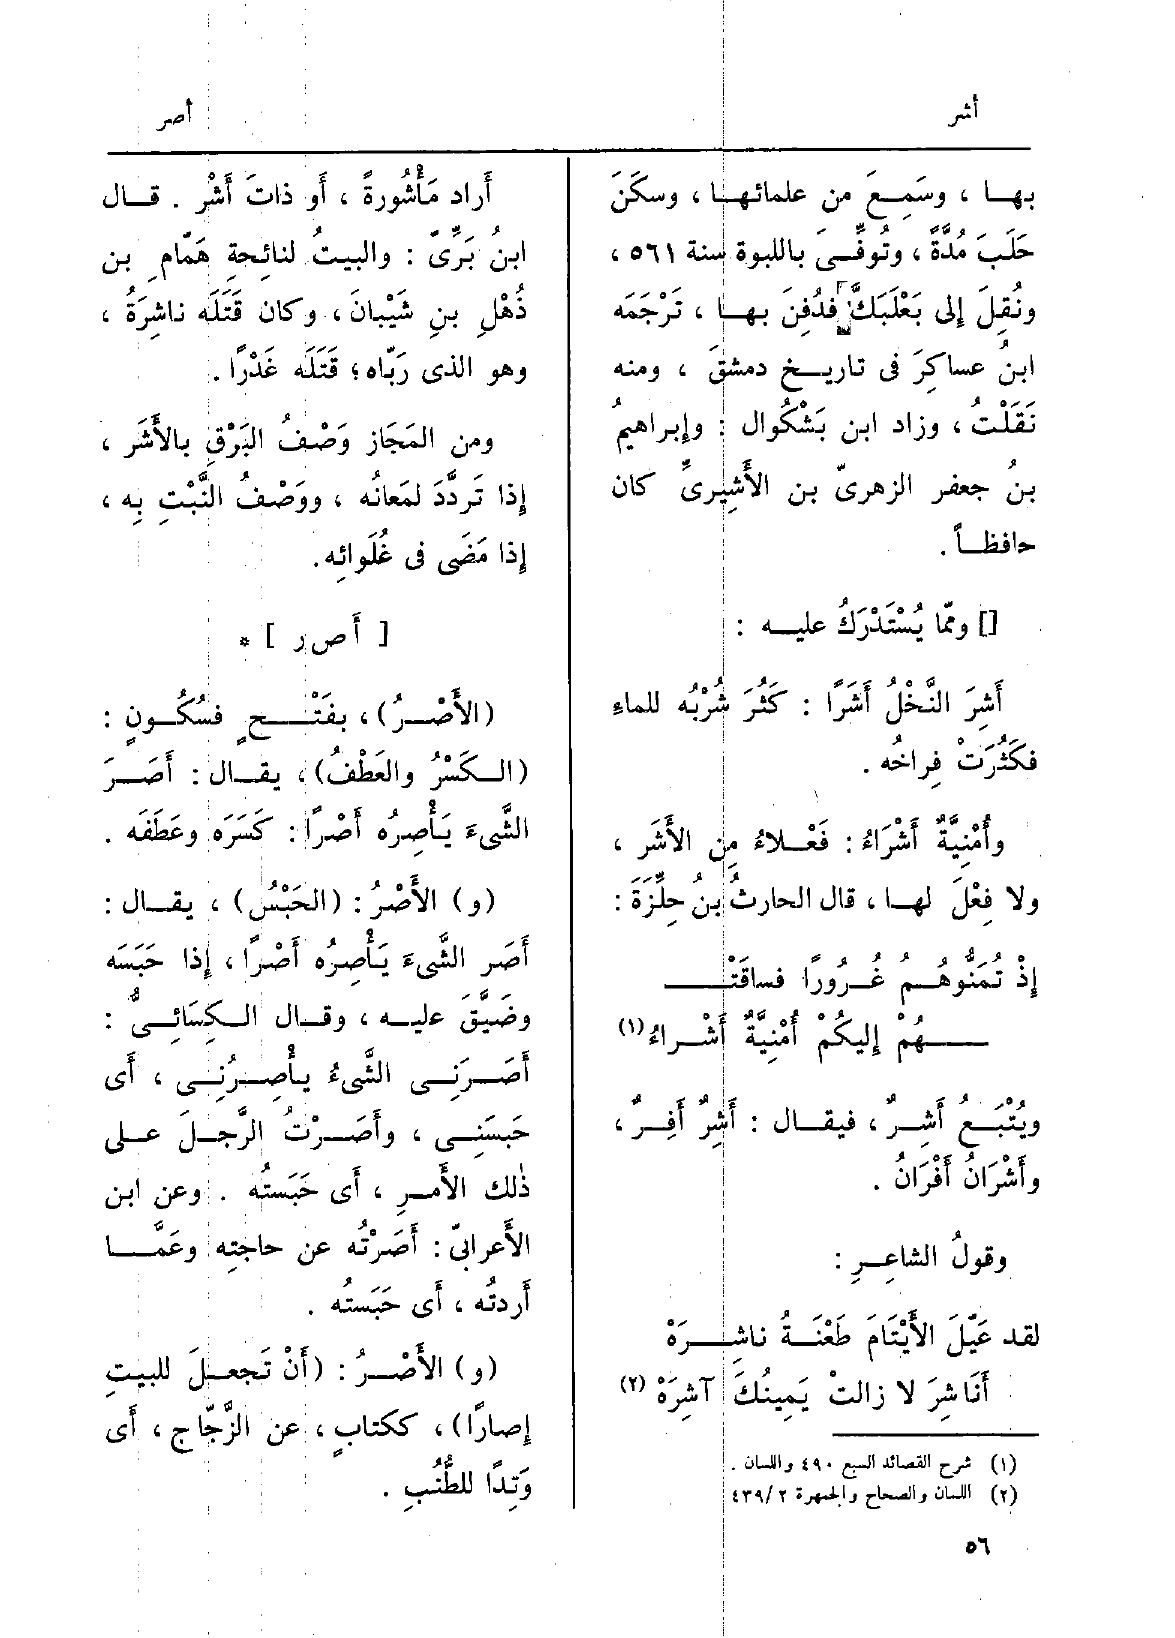 أشر
أصر
بهـا ، وسَمِـعَ من علمائهـا ، وسكَنَ
حَلَبَ مُدَّةً ، وتُوفِّـىَ باللبوة سنة ٥٦١ ،
ونُقِلَ إلى بَعْلَبَكَّ فدُفِنَ بهـا ، تَرْجَمَه
ابنُ عساكِرَ فى تاريـخ دمشقَ ، ومنه
نَقَلْتُ ، وزاد ابن بَشْكُوال : وإبراهيمُ
بنُ جعفر الزهرىّ بن الأَشِيرىّ كان
حافظـاً .
[] وممّا يُسْتَدْرَكُ عليـه :
أَشِرَ النَّخْلُ أَشَرًا : كَثُرَ شُرْبُه للماءِ
فكَثُرَتْ فِراخُه .
وأُمْنِيَّةٌ أَشْرَاءُ : فَعْـلاءُ مِن الأَشَر ،
ولا فِعْلَ لهـا ، قال الحارثُ بنُ حِلِّزَةَ :
إذْ تُمَنُّوهُـمُ غُـرُورًا فساقَتْـــ
ـــهُمْ إليكُمْ أُمْنِيَّةٌ أَشْـراءُ (١)
ويُتْبَـعُ أَشِـرٌ ، فيقـال : أَشِرٌ أَفِـرٌ ،
وأَشْرَانُ أَفْرَانُ .
وقولُ الشاعِـرِ :
لقد عَيَّلَ الأَيْتَامَ طَعْنَـةُ ناشِـرَهْ
أَنَاشِرَ لا زالتْ يَمِينُكَ آشِرَهْ (٢)
(١) شرح القصائد السبع ٤٩٠ واللسان .
(٢) اللسان والصحاح والجمهرة ٢ /٤٣٩
أَراد مَأْشُورةً ، أَو ذاتَ أَشْر . قـال
ابنُ بَرِّىّ : والبيتُ لنائحةِ هَمّامِ بن
ذُهْلِ بنِ شَيْبانَ ، وكان قَتَلَه ناشِرَةُ ،
وهو الذى رَبّاه ؛ قَتَلَه غَدْرًا .
ومن المَجَاز وَصْفُ البَرْقِ بالأَشَر ،
إذا تَردَّدَ لمَعانُه ، ووَصْفُ النَّبْتِ بِه ،
إذا مَضَى فى غُلَوائِه .
[ أ ص ر ] *
(الأَصْـرُ) ، بفَتْـحٍ فسُكُـونٍ :
(الـكَسْرُ والعَطْفُ) ، يقـال : أَصَـرَ
الشَّىءَ يَأْصِرُه أَصْرًا : كَسَرَه وعَطَفَه .
(و) الأَصْرُ : (الحَبْسُ) ، يقـال :
أَصَر الشَّىءَ يَأْصِرُه أَصْرًا ، إذا حَبَسَه
وضَيَّقَ عليـه ، وقـال الـكِسَائـىُّ :
أَصَـرَنِـى الشَّىءُ يأْصِـرُنِـى ، أَى
حَبسَنِـى ، وأَصَـرْتُ الرَّجـلَ عـلى
ذٰلك الأَمـرِ ، أَى حَبَستُه . وعن ابن
الأَعرابىّ : أَصَرْتُه عن حاجتِه وعَمَّـا
أَردتُه ، أَى حَبَستُه .
(و) الأَصْـرُ : (أَنْ تَجعـلَ للبيتِ
إصارًا) ، ككتابٍ ، عن الزَّجّاجِ ، أَى
وَتِدًا للطُّنُبِ .
٥٦